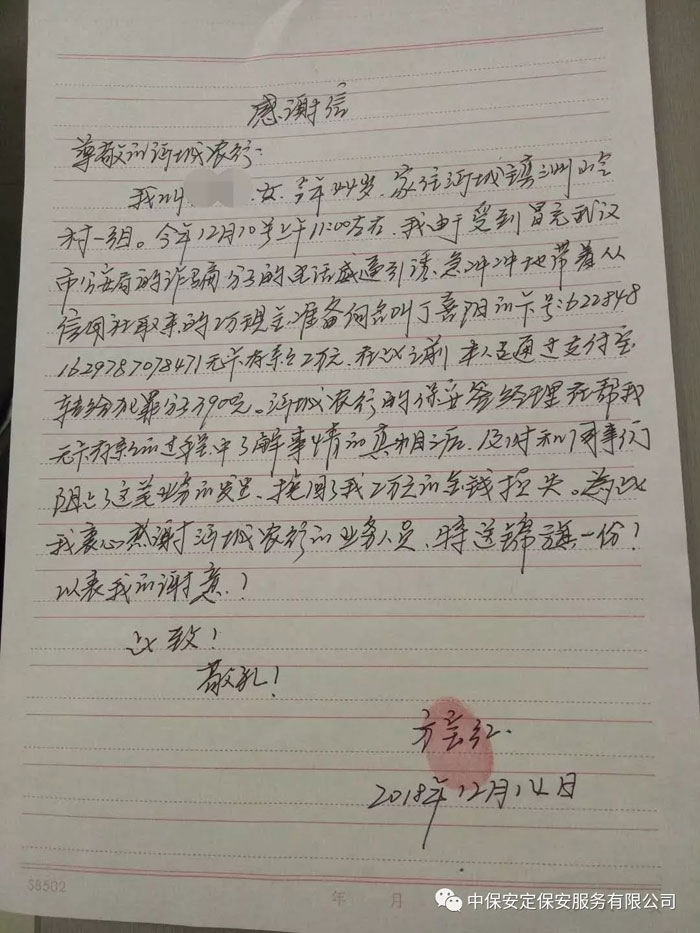 感谢信
尊敬的河城农行:
我叫 女,今年44岁,家住河城镇洲小
村一组。今年12月10号上午11:00左右,我由于受到冒充武汉
市公安局的诈骗分子的电话威逼引诱,急冲冲地带着从
信用社取来的2万现金准备向名叫丁喜阳的卡号:622848
1629787078471无卡存款2万元,在此之前本人还通过支付宝
转给犯罪分子390元。河城农行的保安 经理在帮我
无卡存款的过程中了解事情的真相之后,及时和同事们
阻止了这笔业务的发生,挽回了我2万元的金钱损失。为此
我衷心感谢河城农行的业务人员,特送锦旗一份!
以表我的谢意!
此致!
敬礼!
方芸红.
2018年12月14日
S8502
年 月
中保安定保安服务有限公司